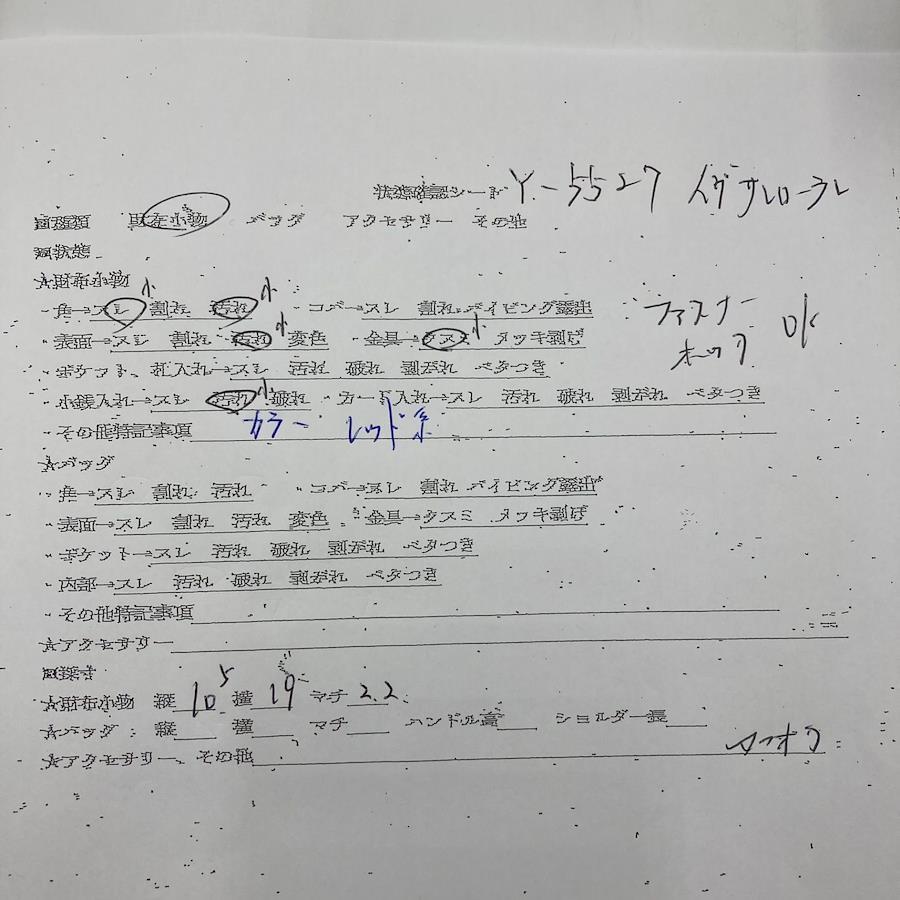 状態確認シート Y-5527 イヴサンローラン
■種類 財布小物 バッグ アクセサリー その他
■状態
★財布小物
・角→スレ 小 割れ 汚れ 小 ・コバ→スレ 割れ パイピング露出
・表面→スレ 割れ 汚れ 小 変色 ・金具→クスミ 小 メッキ剥げ
ファスナー
ホック OK
・ポケット、札入れ→スレ 汚れ 破れ 剥がれ ベタつき
・小銭入れ→スレ 汚れ 小 破れ ・カード入れ→スレ 汚れ 破れ 剥がれ ベタつき
・その他特記事項 カラー レッド系
★バッグ
・角→スレ 割れ 汚れ ・コバ→スレ 割れ パイピング露出
・表面→スレ 割れ 汚れ 変色 ・金具→クスミ メッキ剥げ
・ポケット→スレ 汚れ 破れ 剥がれ ベタつき
・内部→スレ 汚れ 破れ 剥がれ ベタつき
・その他特記事項
★アクセサリー
■採寸
★財布小物 縦 10 5 横 19 マチ 2.2
★バッグ : 縦 横 マチ ハンドル高 ショルダー長
★アクセサリー、その他